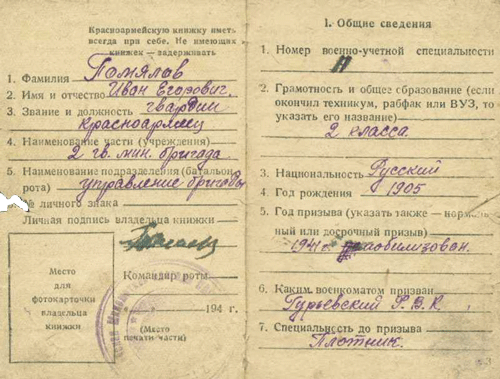 Красноармейскую книжку иметь
всегда при себе. Не имеющих
книжек — задерживать
1. Фамилия Помялов
2. Имя и отчество Иван Егорович
3. Звание и должность гвардии
красноармеец
4. Наименование части (учреждения)
2 гв. мин. бригада
5. Наименование подразделения (батальон,
рота) управление бригады
№ личного знака
Личная подпись владельца книжки
Место
для
фотокарточки
владельца
книжки
Командир роты
194 г.
(Место
печати части)
1. Общие сведения
1. Номер военно-учетной специальности
2. Грамотность и общее образование (если
окончил техникум, рабфак или ВУЗ, то
указать его название)
2 класса
3. Национальность Русский
4. Год рождения 1905
5. Год призыва (указать также — нормаль-
ный или досрочный призыв)
1941 г. мобилизован.
6. Каким военкоматом призван
Гурьевский Р.В.К.
7. Специальность до призыва
Плотник.